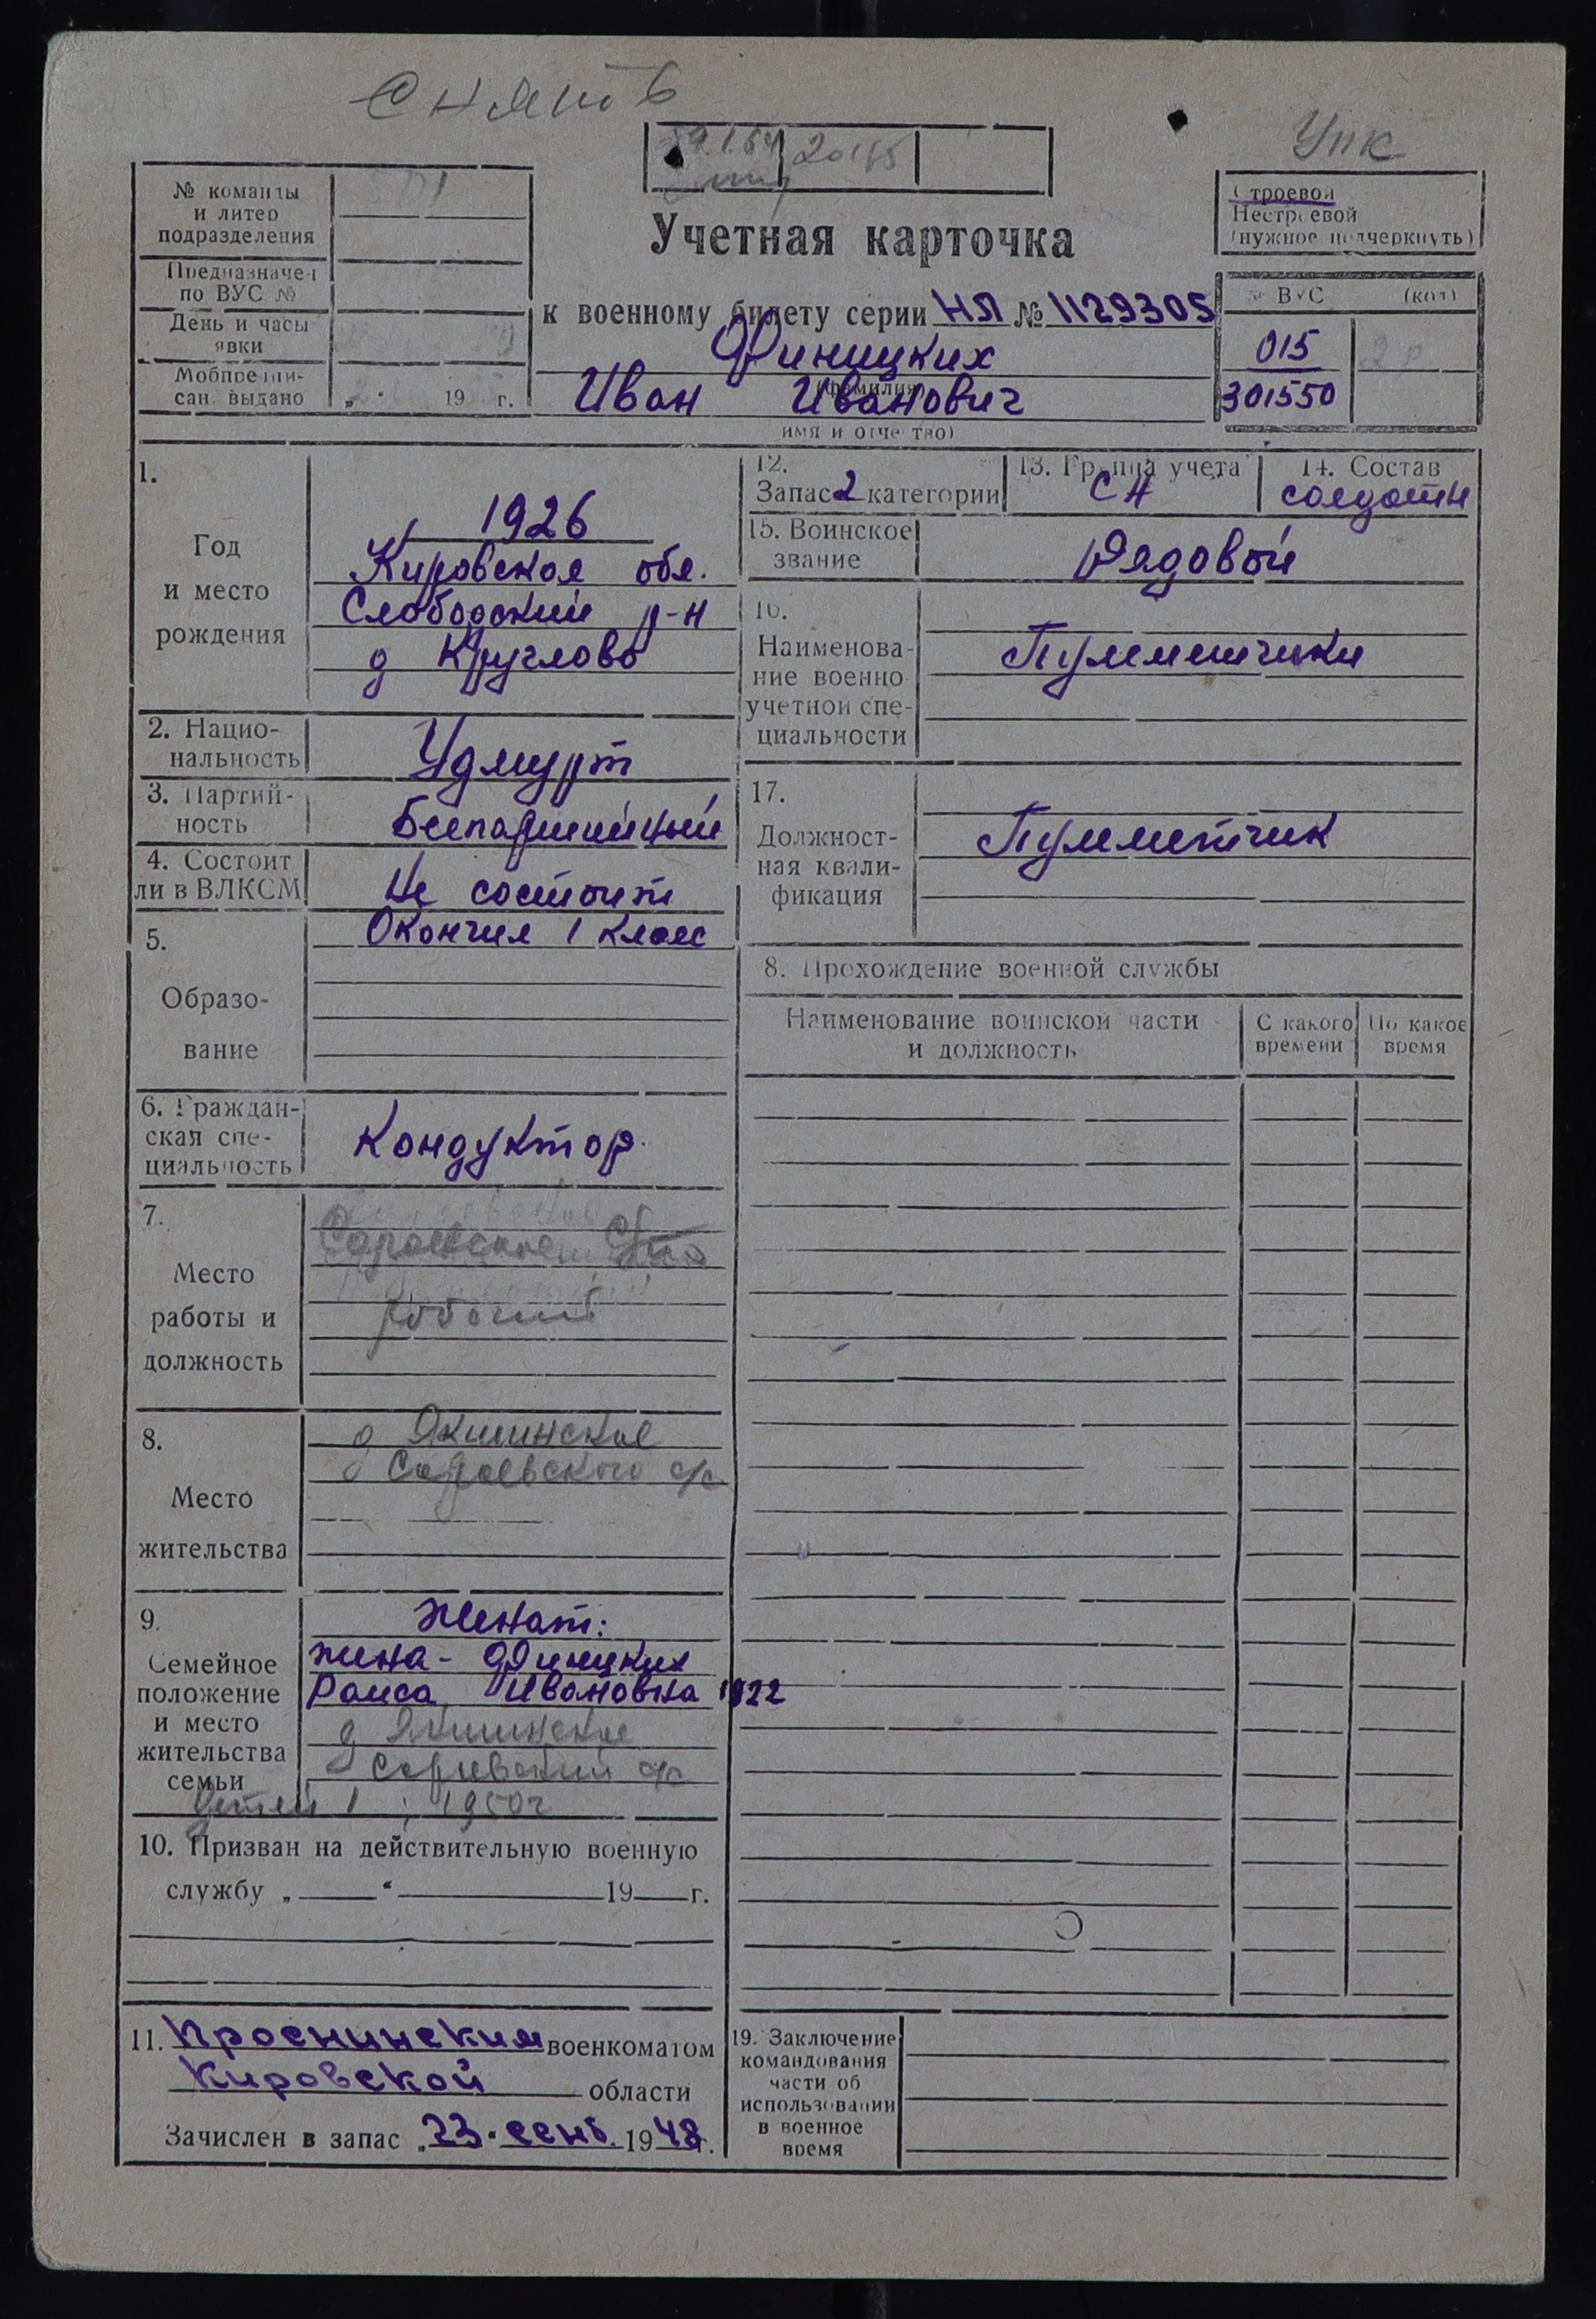 снять
УПК
20/65
№ команды
и литер
подразделения
Предназначен
по ВУС №
День и часы
явки
Мобпредпи-
сан. выдано „ “ 19 г.
Строевой
Нестроевой
(нужное подчеркнуть)
Учетная карточка
к военному билету серии НЛ № 1129305
Финицких
(фамилия)
Иван Иванович
имя и отчество)
№ ВУС (код)
015
301550
1.
Год
и место
рождения
1926
Кировская обл.
Слободский р-н
д Круглово
2. Нацио-
нальность
Удмурт
3. Партий-
ность
Беспартийный
4. Состоит
ли в ВЛКСМ
Не состоит
5.
Образо-
вание
Окончил 1 класс
6. Граждан-
ская спе-
циальность
Кондуктор
7.
Место
работы и
должность
рабочий
8.
Место
жительства
д Якшинское
Сараевского с/с
9.
Семейное
положение
и место
жительства
семьи
Женат:
жена - Финицких
Раиса Ивановна 1922
д Якшинское
Сараевский с/с
детей 1 : 1950г
10. Призван на действительную военную
службу „ “ 19 г.
11. Просницким военкоматом
Кировской области
Зачислен в запас „23“ сент. 1948г.
12.
Запас 2 категории
13. Группа учета
СА
14. Состав
солдаты
15. Воинское
звание
Рядовой
16.
Наименова-
ние военно-
учетной спе-
циальности
Пулеметчики
17.
Должност-
ная квали-
фикация
Пулеметчик
8. Прохождение военной службы
Наименование воинской части
и должность
С какого
времени
По какое
время
19. Заключение
командования
части об
использовании
в военное
время